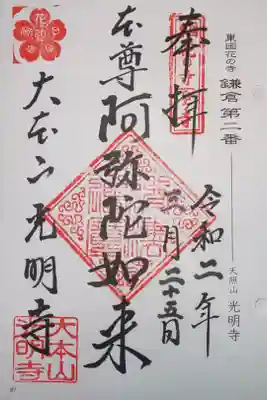 東国花の寺 鎌倉第二番
天照山 光明寺
奉拝
令和二年
三月二十五日
本尊阿弥陀如来
大本山光明寺
大本山
光明寺